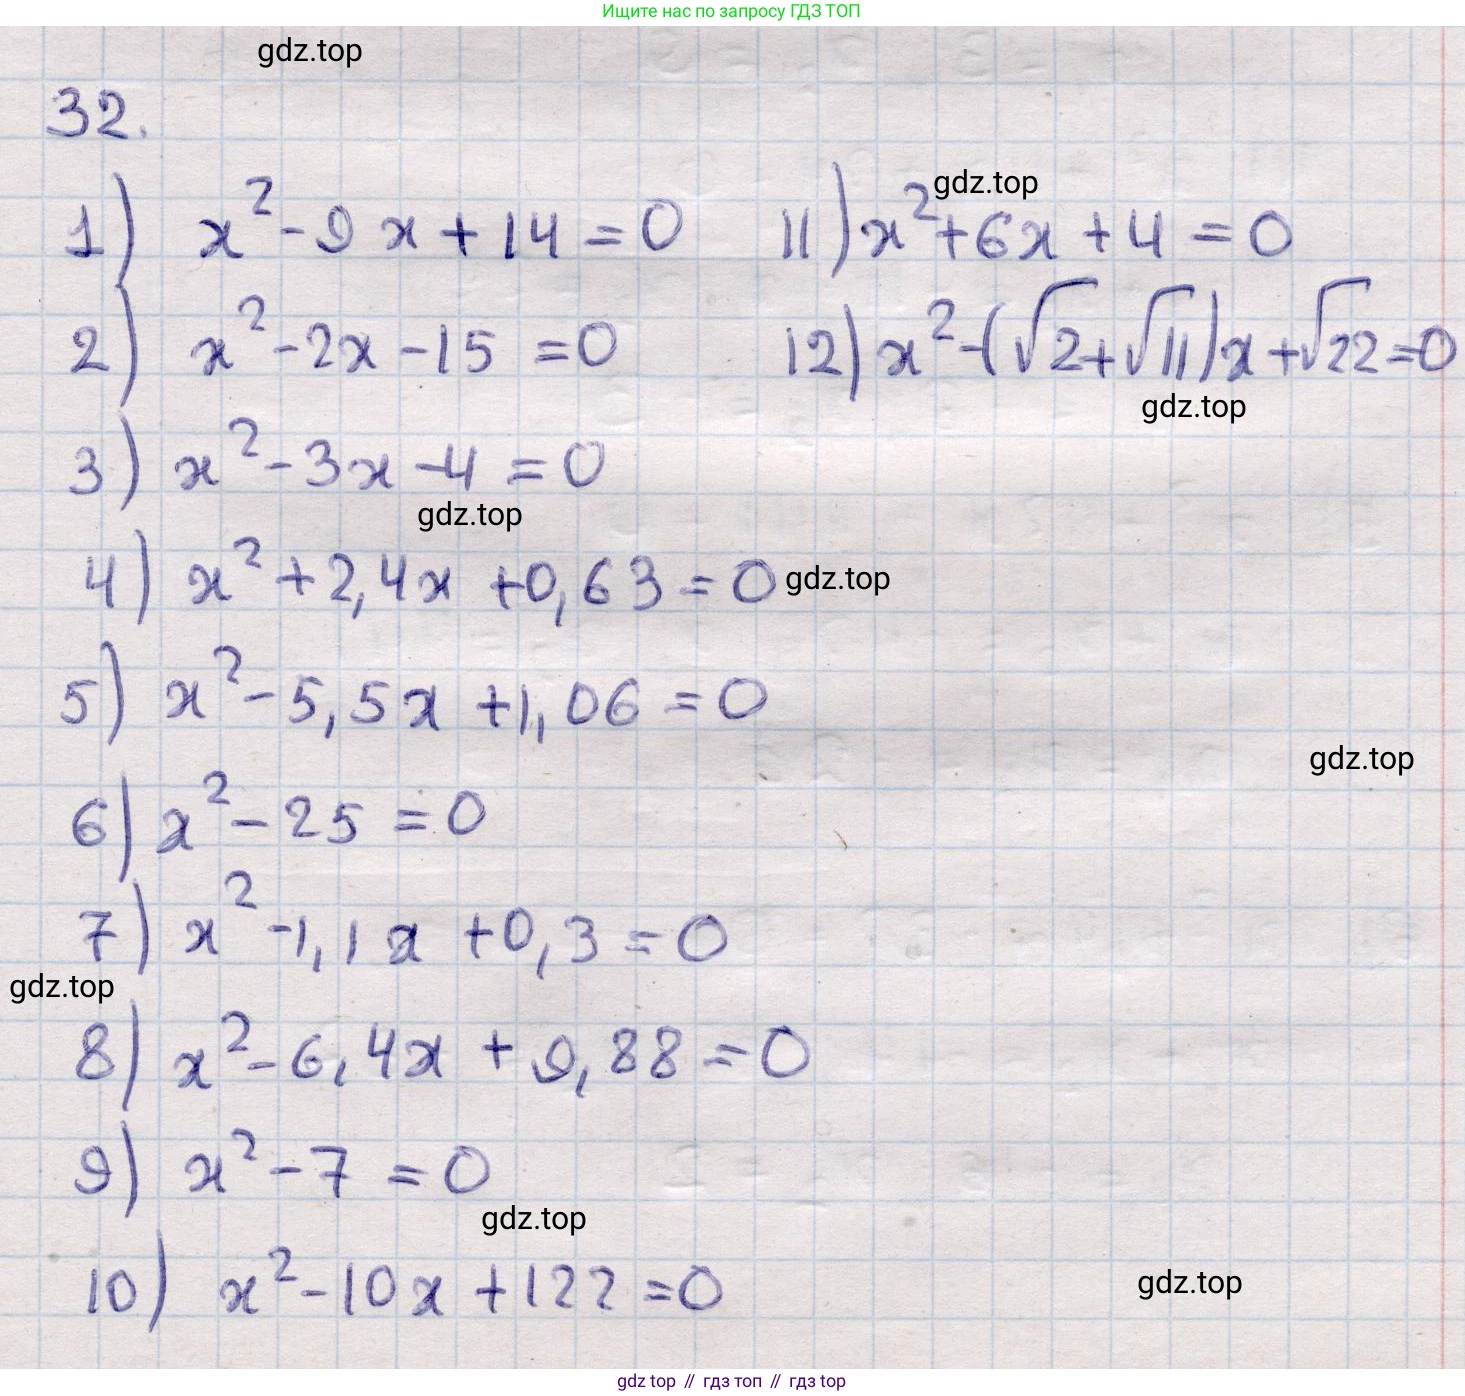 Ищите нас по запросу ГДЗ ТОП
gdz.top
32.
1) x² - 9x + 14 = 0
11) x² + 6x + 4 = 0
gdz.top
2) x² - 2x - 15 = 0
12) x² - (√2 + √11)x + √22 = 0
gdz.top
3) x² - 3x - 4 = 0
gdz.top
4) x² + 2,4x + 0,63 = 0
gdz.top
5) x² - 5,5x + 1,06 = 0
gdz.top
6) x² - 25 = 0
7) x² - 1,1x + 0,3 = 0
gdz.top
8) x² - 6,4x + 9,88 = 0
9) x² - 7 = 0
gdz.top
10) x² - 10x + 122 = 0
gdz.top
gdz top // гдз топ // gdz top